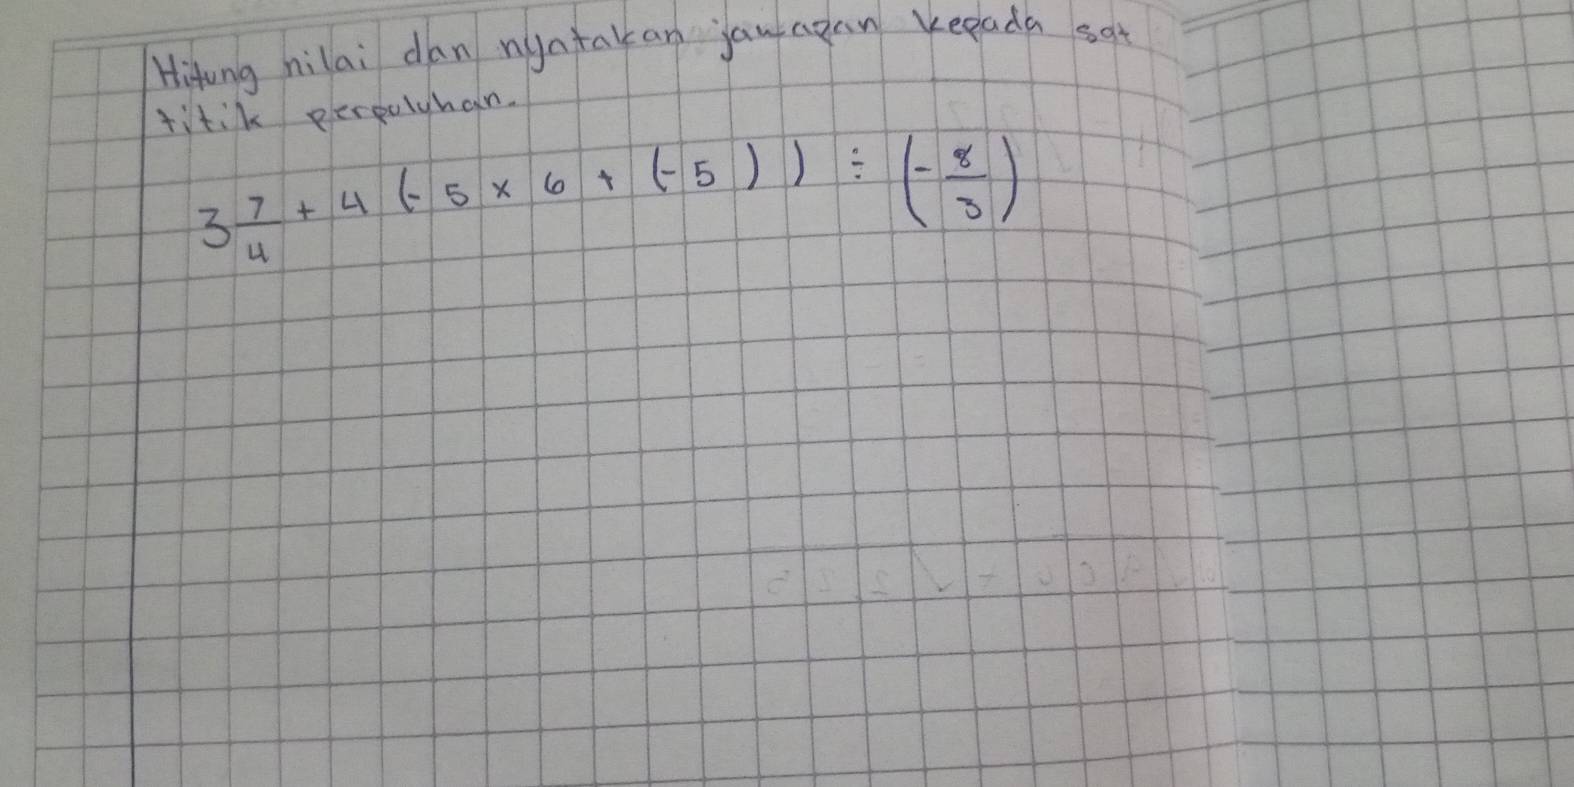 Hitung nilai dan nyatakan jawapan kepada sat
titik perpuluhan.
3 7/4 + 4 (-5 × 6 + (-5)) ÷ (-8/3)